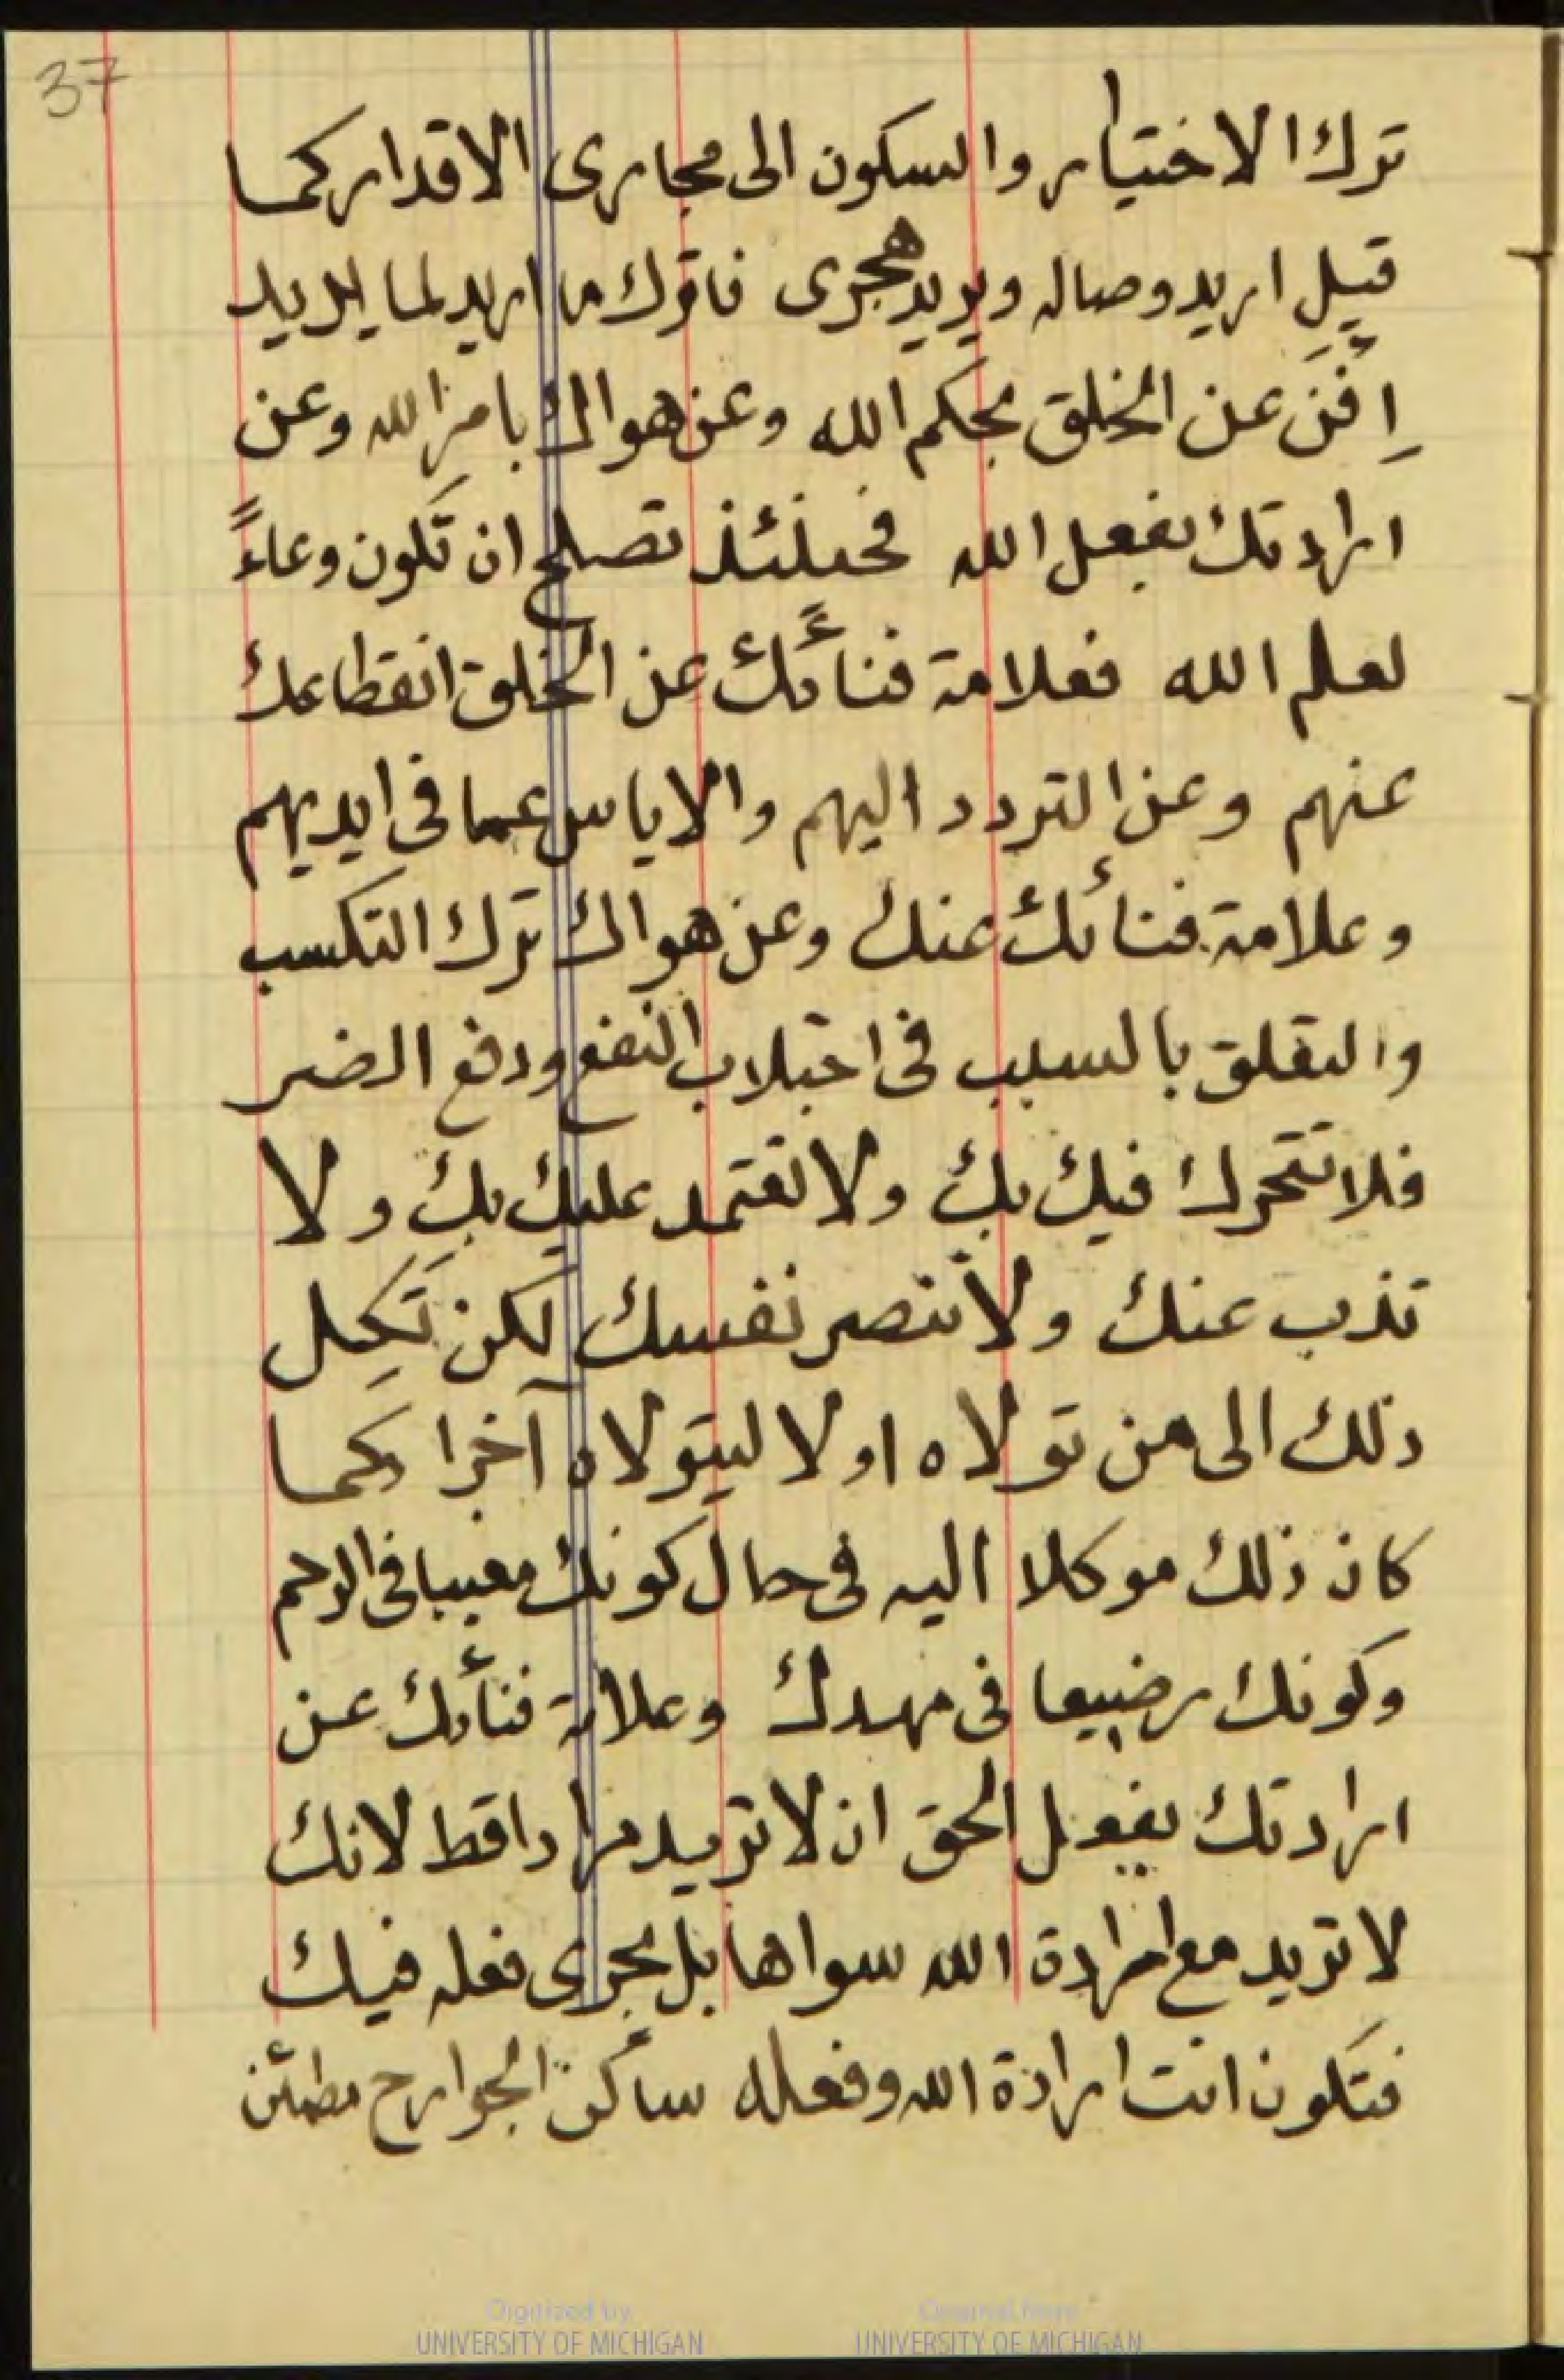 37
ترك الاختيار والسكون الى مجارى الاقدار كما
قيل اريد وصاله ويريد هجرى فاترك ما اريد لما يريد
اِفْنَ عن الخلق بحكم الله وعن هواك بامر الله وعن
ارادتك بفعل الله فحينئذ تصلح ان تكون وعاءً
لعلم الله فعلامة فنائك عن الخلق انقطاعك
عنهم وعن التردد اليهم والاياس عما فى ايديهم
وعلامة فنائك عنك وعن هواك ترك التكسب
والتعلق بالسبب فى اجتلاب النفع ودفع الضر
فلا تتحرك فيك بك ولا تعتمد عليك بك ولا
تذب عنك ولا تنصر نفسك لكن تَكِل
ذلك الى من تولاه اولا ليتولاه آخرا كما
كان ذلك موكلا اليه فى حال كونك مغيبا فى الرحم
وكونك رضيعا فى مهدك وعلامة فنائك عن
ارادتك بفعل الحق ان لا تريد مرادا قط لانك
لا تريد مع ارادة الله سواها بل يجرى فعله فيك
فتكون انت ارادة الله وفعله ساكن الجوارح مطمئن
Digitized by
UNIVERSITY OF MICHIGAN
Original from
UNIVERSITY OF MICHIGAN